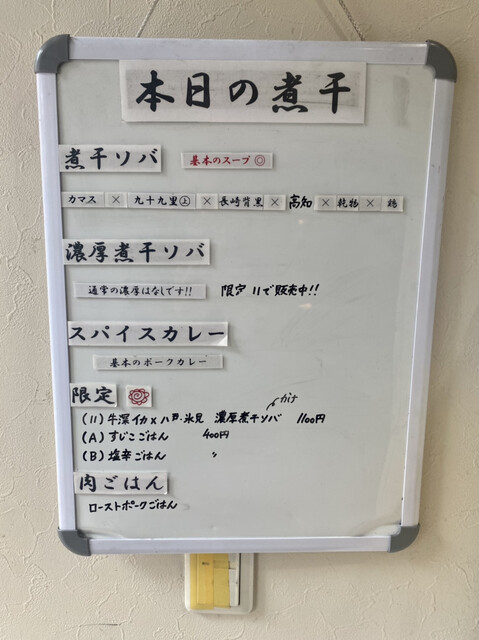 本日の煮干
煮干ソバ 基本のスープ◎
カマス × 九十九里㊤ × 長崎背黒 × 高知 × 乾物 × 鶏
濃厚煮干ソバ
通常の濃厚はなしです!! 限定 11で販売中!!
スパイスカレー
基本のポークカレー
限定
(11) 牛深イカ×八戸・氷見 濃厚煮干ソバ 1100円
(A) すじこごはん 400円
(B) 塩辛ごはん 〃
肉ごはん
ローストポークごはん